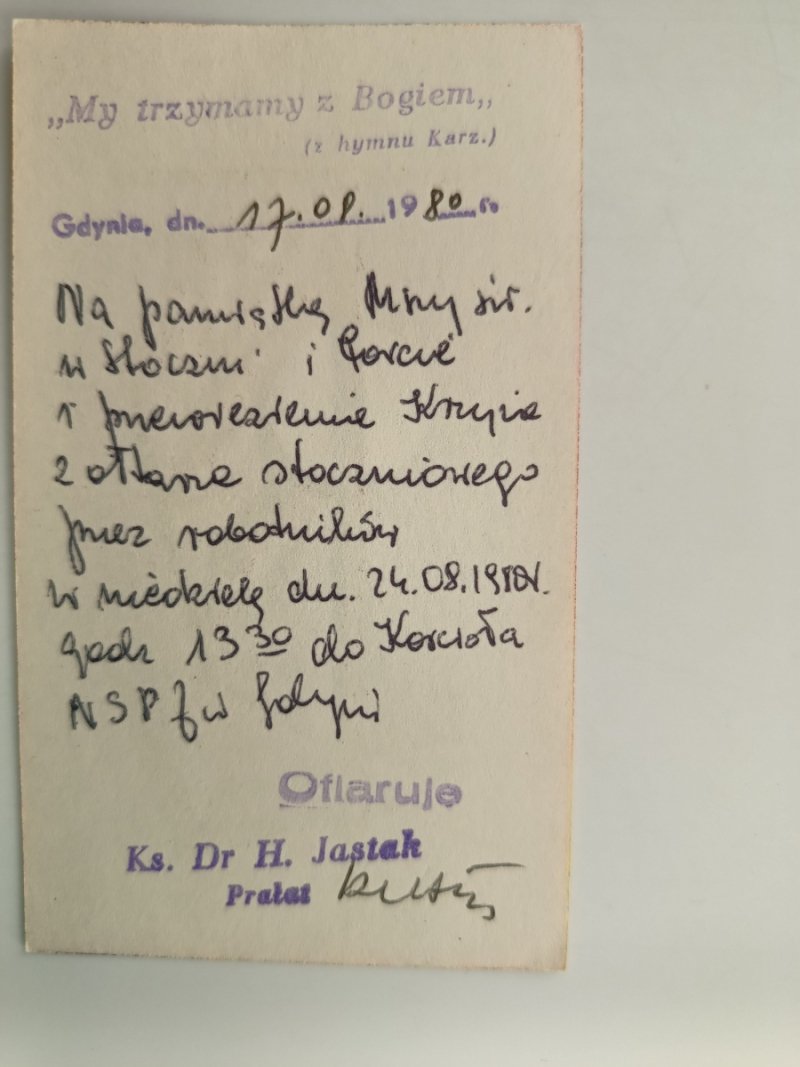 „My trzymamy z Bogiem„
(z hymnu Karz.)
Gdynia, dn. 17.08. 1980 r.
Na pamiątkę Mszy św.
w Stoczni i Porcie
i przewiezienie Krzyża
z ołtarza stoczniowego
przez robotników
w niedzielę dn. 24.08.1980r.
godz 13 30 do Kościoła
NSPJ w Gdyni
Ofiaruje
Ks. Dr H. Jastak
Prałat